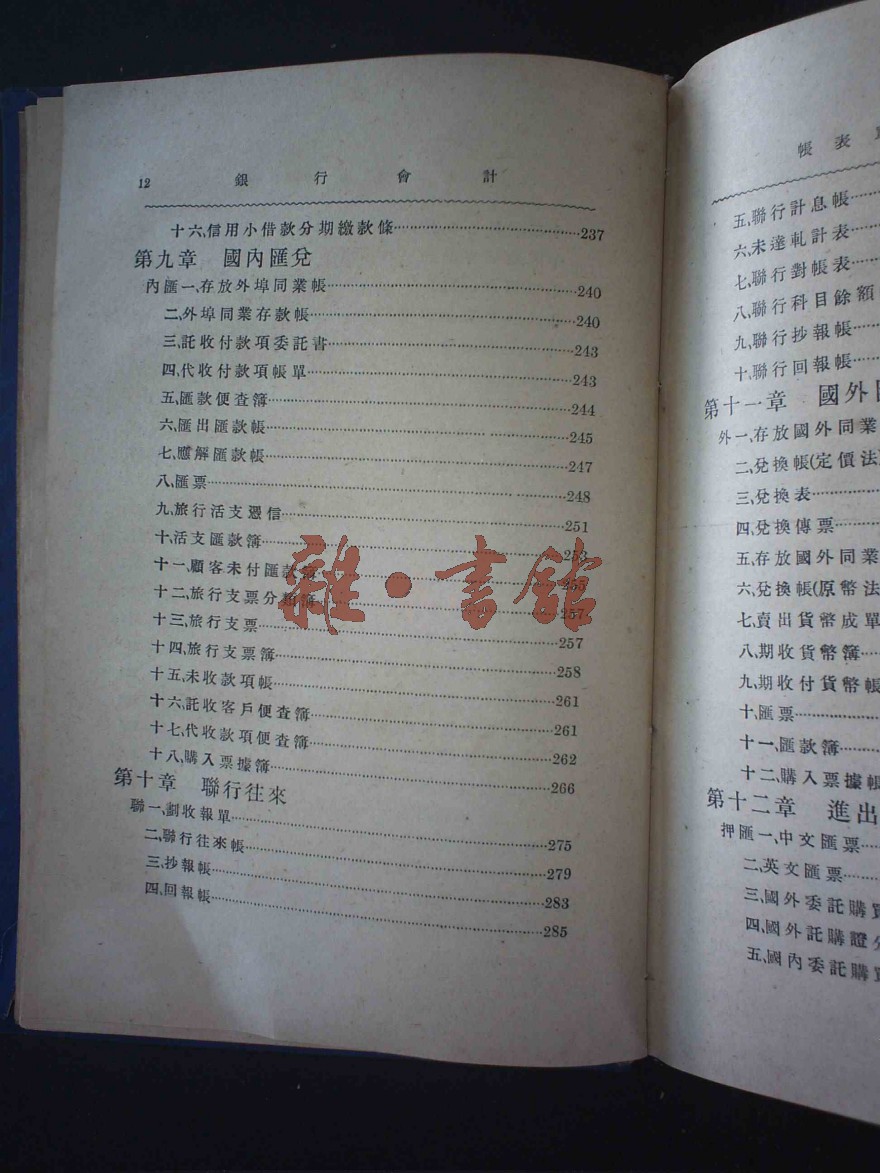 12 銀行會計
十六、信用小借款分期繳款條……237
第九章 國內匯兌
內匯一、存放外埠同業帳……240
二、外埠同業存款帳……240
三、託收付款項委託書……243
四、代收付款項帳單……243
五、匯款便查簿……244
六、匯出匯款帳……245
七、應解匯款帳……247
八、匯票……248
九、旅行活支憑信……251
十、活支匯款簿……253
十一、顧客未付匯款簿……255
十二、旅行支票分類簿……257
十三、旅行支票……257
十四、旅行支票簿……258
十五、未收款項帳……261
十六、託收客戶便查簿……261
十七、代收款項便查簿……262
十八、購入票據簿……266
第十章 聯行往來
聯一、劃收報單……275
二、聯行往來帳……279
三、抄報帳……283
四、回報帳……285
雜·書館
帳表
五、聯行計息帳……
六、未達軋計表……
七、聯行對帳表……
八、聯行科目餘額
九、聯行抄報帳……
十、聯行回報帳……
第十一章 國外
外一、存放國外同業
二、兌換帳(定價法)
三、兌換表……
四、兌換傳票……
五、存放國外同業
六、兌換帳(原幣法
七、賣出貨幣成單
八、期收貨幣簿……
九、期收付貨幣帳
十、匯票……
十一、匯款簿……
十二、購入票據帳
第十二章 進出
押匯一、中文匯票……
二、英文匯票……
三、國外委託購買
四、國外託購證
五、國內委託購買